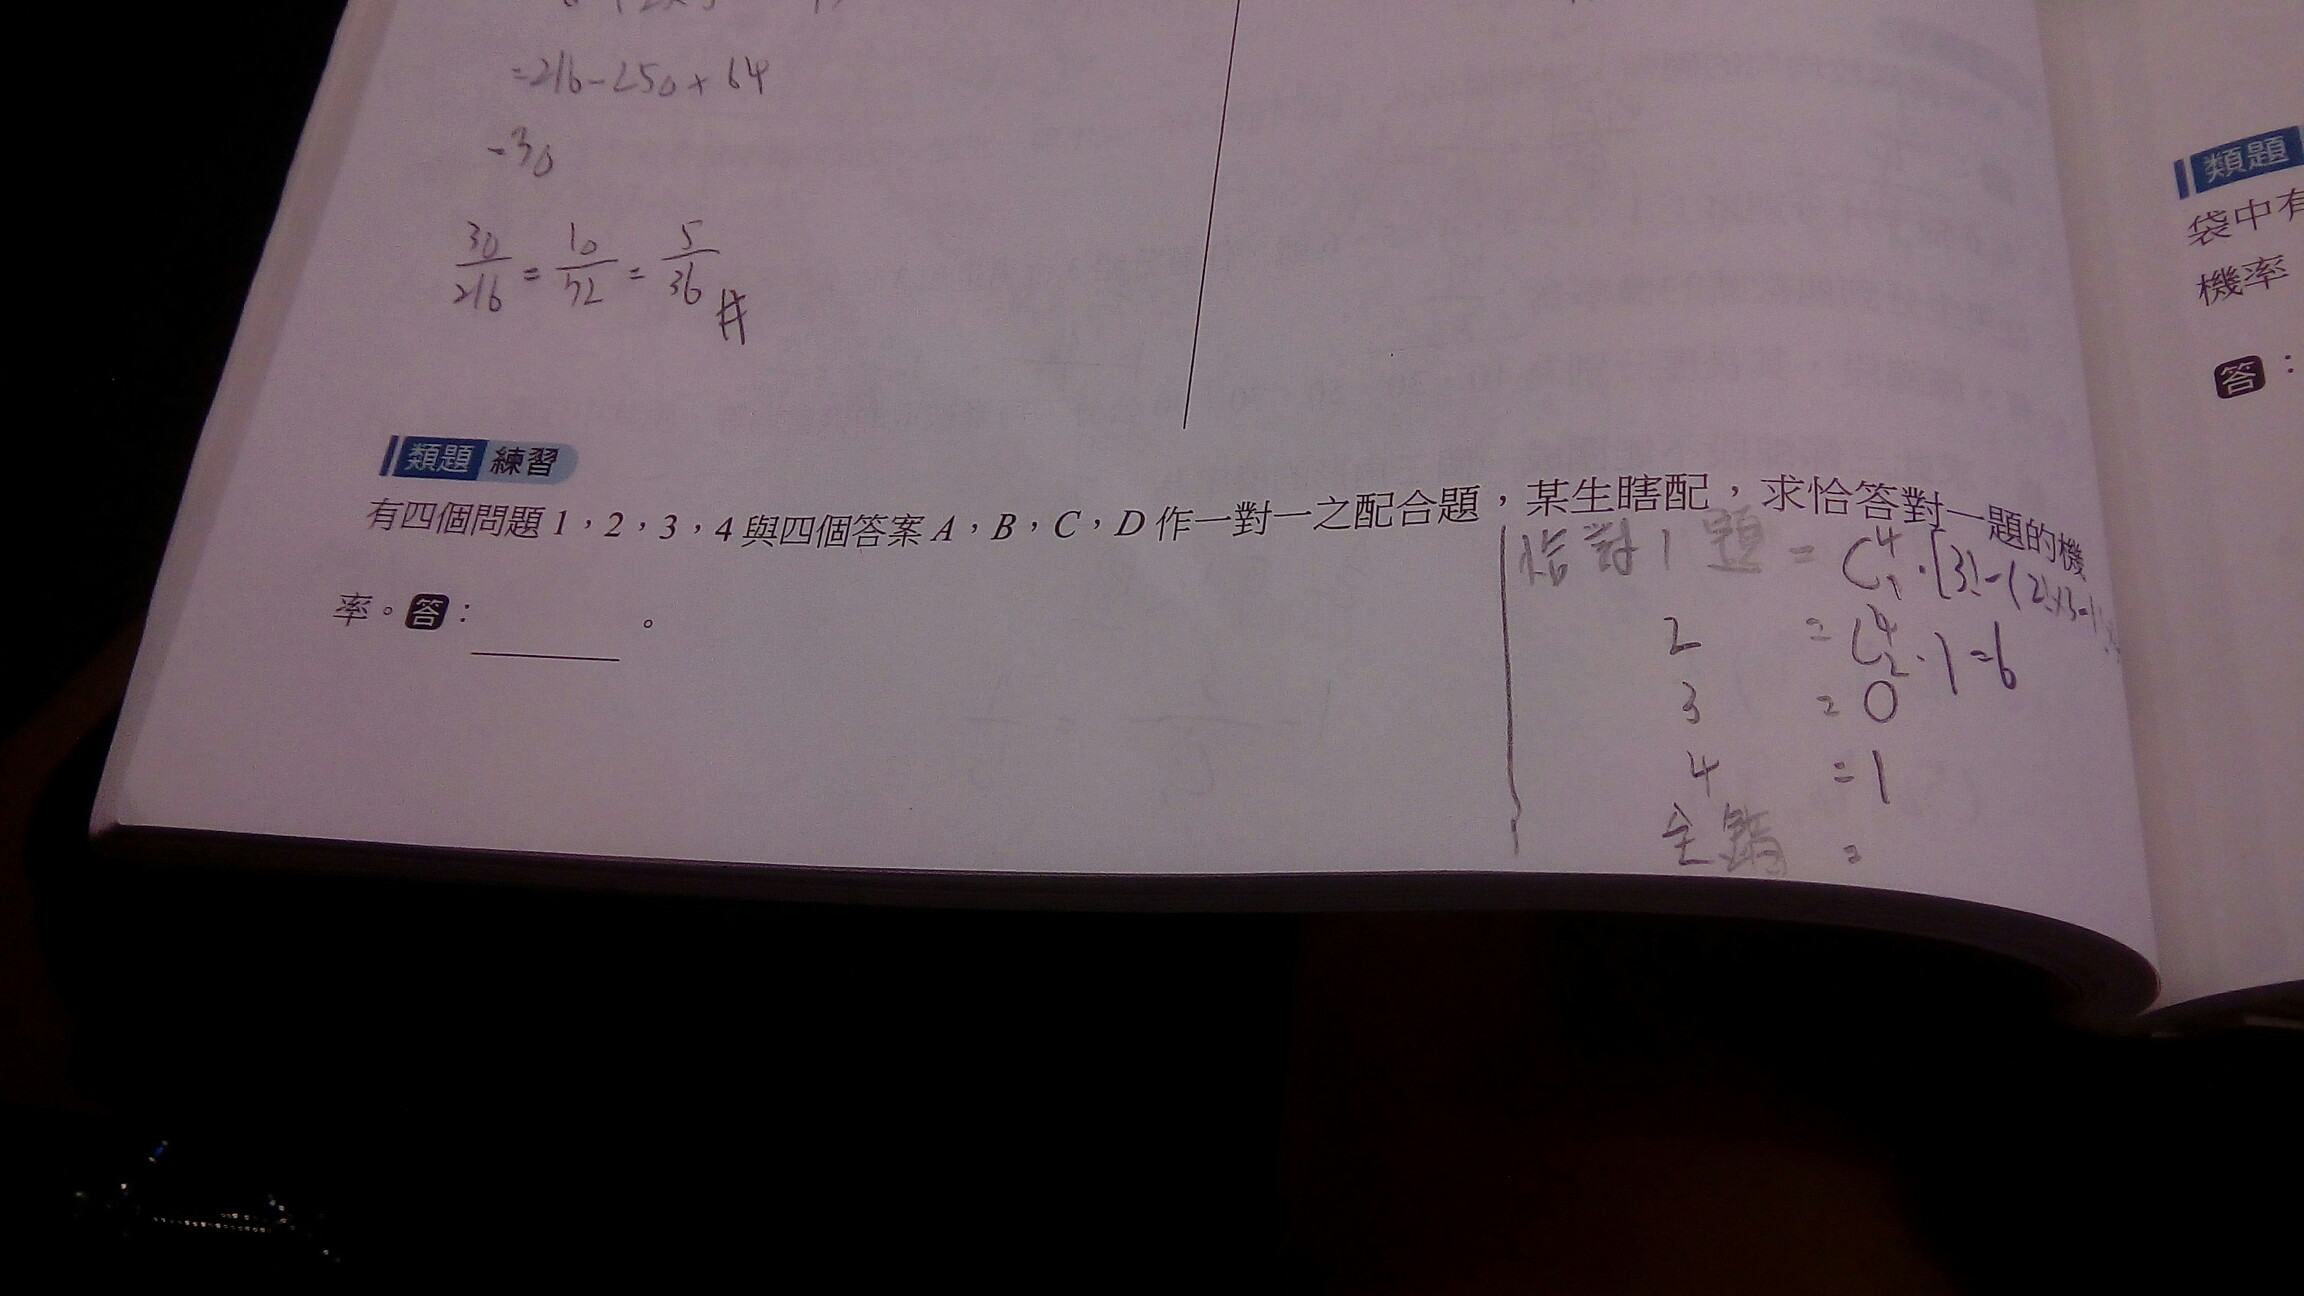 =216-250+64
=30
30/216 = 10/72 = 5/36 #
類題 練習
有四個問題 1，2，3，4 與四個答案 A，B，C，D 作一對一之配合題，某生瞎配，求恰答對一題的機
率。答：______。
恰對1題 = C⁴₁·[3!-(2!×3-1
2 = C⁴₂·1=6
3 = 0
4 = 1
全錯 =
類題
袋中有
機率
答：